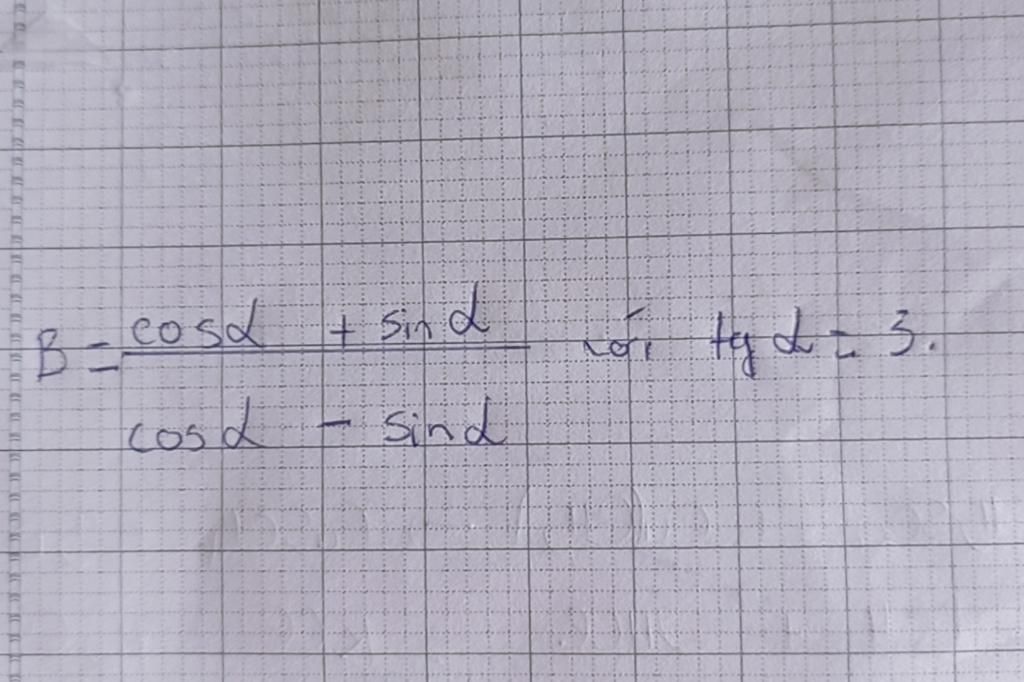 B = cosα + sinα / cosα - sinα với tg α = 3.